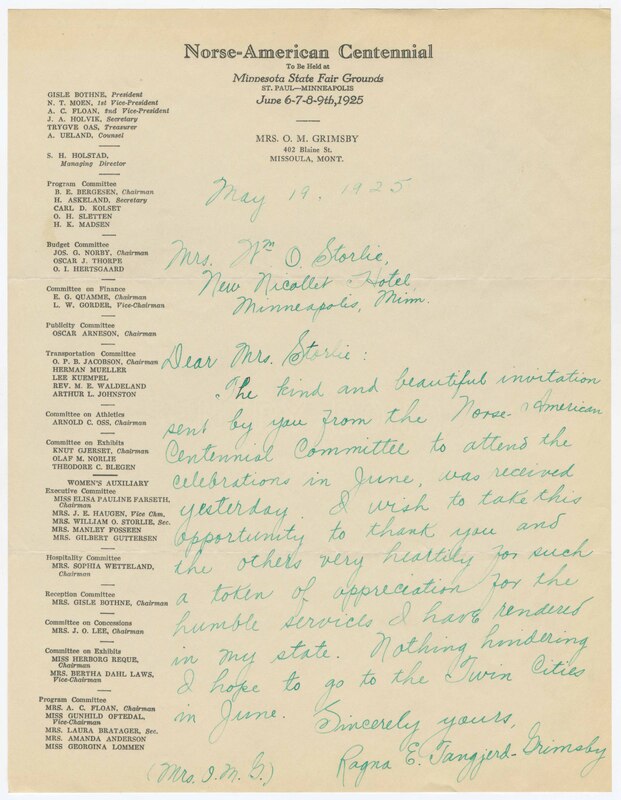 Norse-American Centennial
To Be Held at
Minnesota State Fair Grounds
ST. PAUL—MINNEAPOLIS
June 6-7-8-9th, 1925
MRS. O. M. GRIMSBY
402 Blaine St.
MISSOULA, MONT.
GISLE BOTHNE, President
N. T. MOEN, 1st Vice-President
A. C. FLOAN, 2nd Vice-President
J. A. HOLVIK, Secretary
TRYGVE OAS, Treasurer
A. UELAND, Counsel
S. H. HOLSTAD,
Managing Director
Program Committee
B. E. BERGESEN, Chairman
H. ASKELAND, Secretary
CARL D. KOLSET
O. H. SLETTEN
H. K. MADSEN
Budget Committee
JOS. G. NORBY, Chairman
OSCAR J. THORPE
O. I. HERTSGAARD
Committee on Finance
E. G. QUAMME, Chairman
L. W. GORDER, Vice-Chairman
Publicity Committee
OSCAR ARNESON, Chairman
Transportation Committee
O. P. B. JACOBSON, Chairman
HERMAN MUELLER
LEE KUEMPEL
REV. M. E. WALDELAND
ARTHUR L. JOHNSTON
Committee on Athletics
ARNOLD C. OSS, Chairman
Committee on Exhibits
KNUT GJERSET, Chairman
OLAF M. NORLIE
THEODORE C. BLEGEN
WOMEN'S AUXILIARY
Executive Committee
MISS ELISA PAULINE FARSETH,
Chairman
MRS. J. E. HAUGEN, Vice Chm.
MRS. WILLIAM O. STORLIE, Sec.
MRS. MANLEY FOSSEEN
MRS. GILBERT GUTTERSEN
Hospitality Committee
MRS. SOPHIA WETTELAND,
Chairman
Reception Committee
MRS. GISLE BOTHNE, Chairman
Committee on Concessions
MRS. J. O. LEE, Chairman
Committee on Exhibits
MISS HERBORG REQUE,
Chairman
MRS. BERTHA DAHL LAWS,
Vice-Chairman
Program Committee
MRS. A. C. FLOAN, Chairman
MISS GUNHILD OFTEDAL,
Vice-Chairman
MRS. LAURA BRATAGER, Sec.
MRS. AMANDA ANDERSON
MISS GEORGINA LOMMEN
May 19, 1925
Mrs. Wm O. Storlie,
New Nicollet Hotel,
Minneapolis, Minn.
Dear Mrs. Storlie:
The kind and beautiful invitation
sent by you from the Norse-American
Centennial Committee to attend the
celebrations in June, was received
yesterday. I wish to take this
opportunity to thank you and
the others very heartily for such
a token of appreciation for the
humble services I have rendered
in my state. Nothing hindering
I hope to go to the Twin Cities
in June. Sincerely yours,
Ragna E. Tangjerd-Grimsby
(Mrs. O. M. G.)